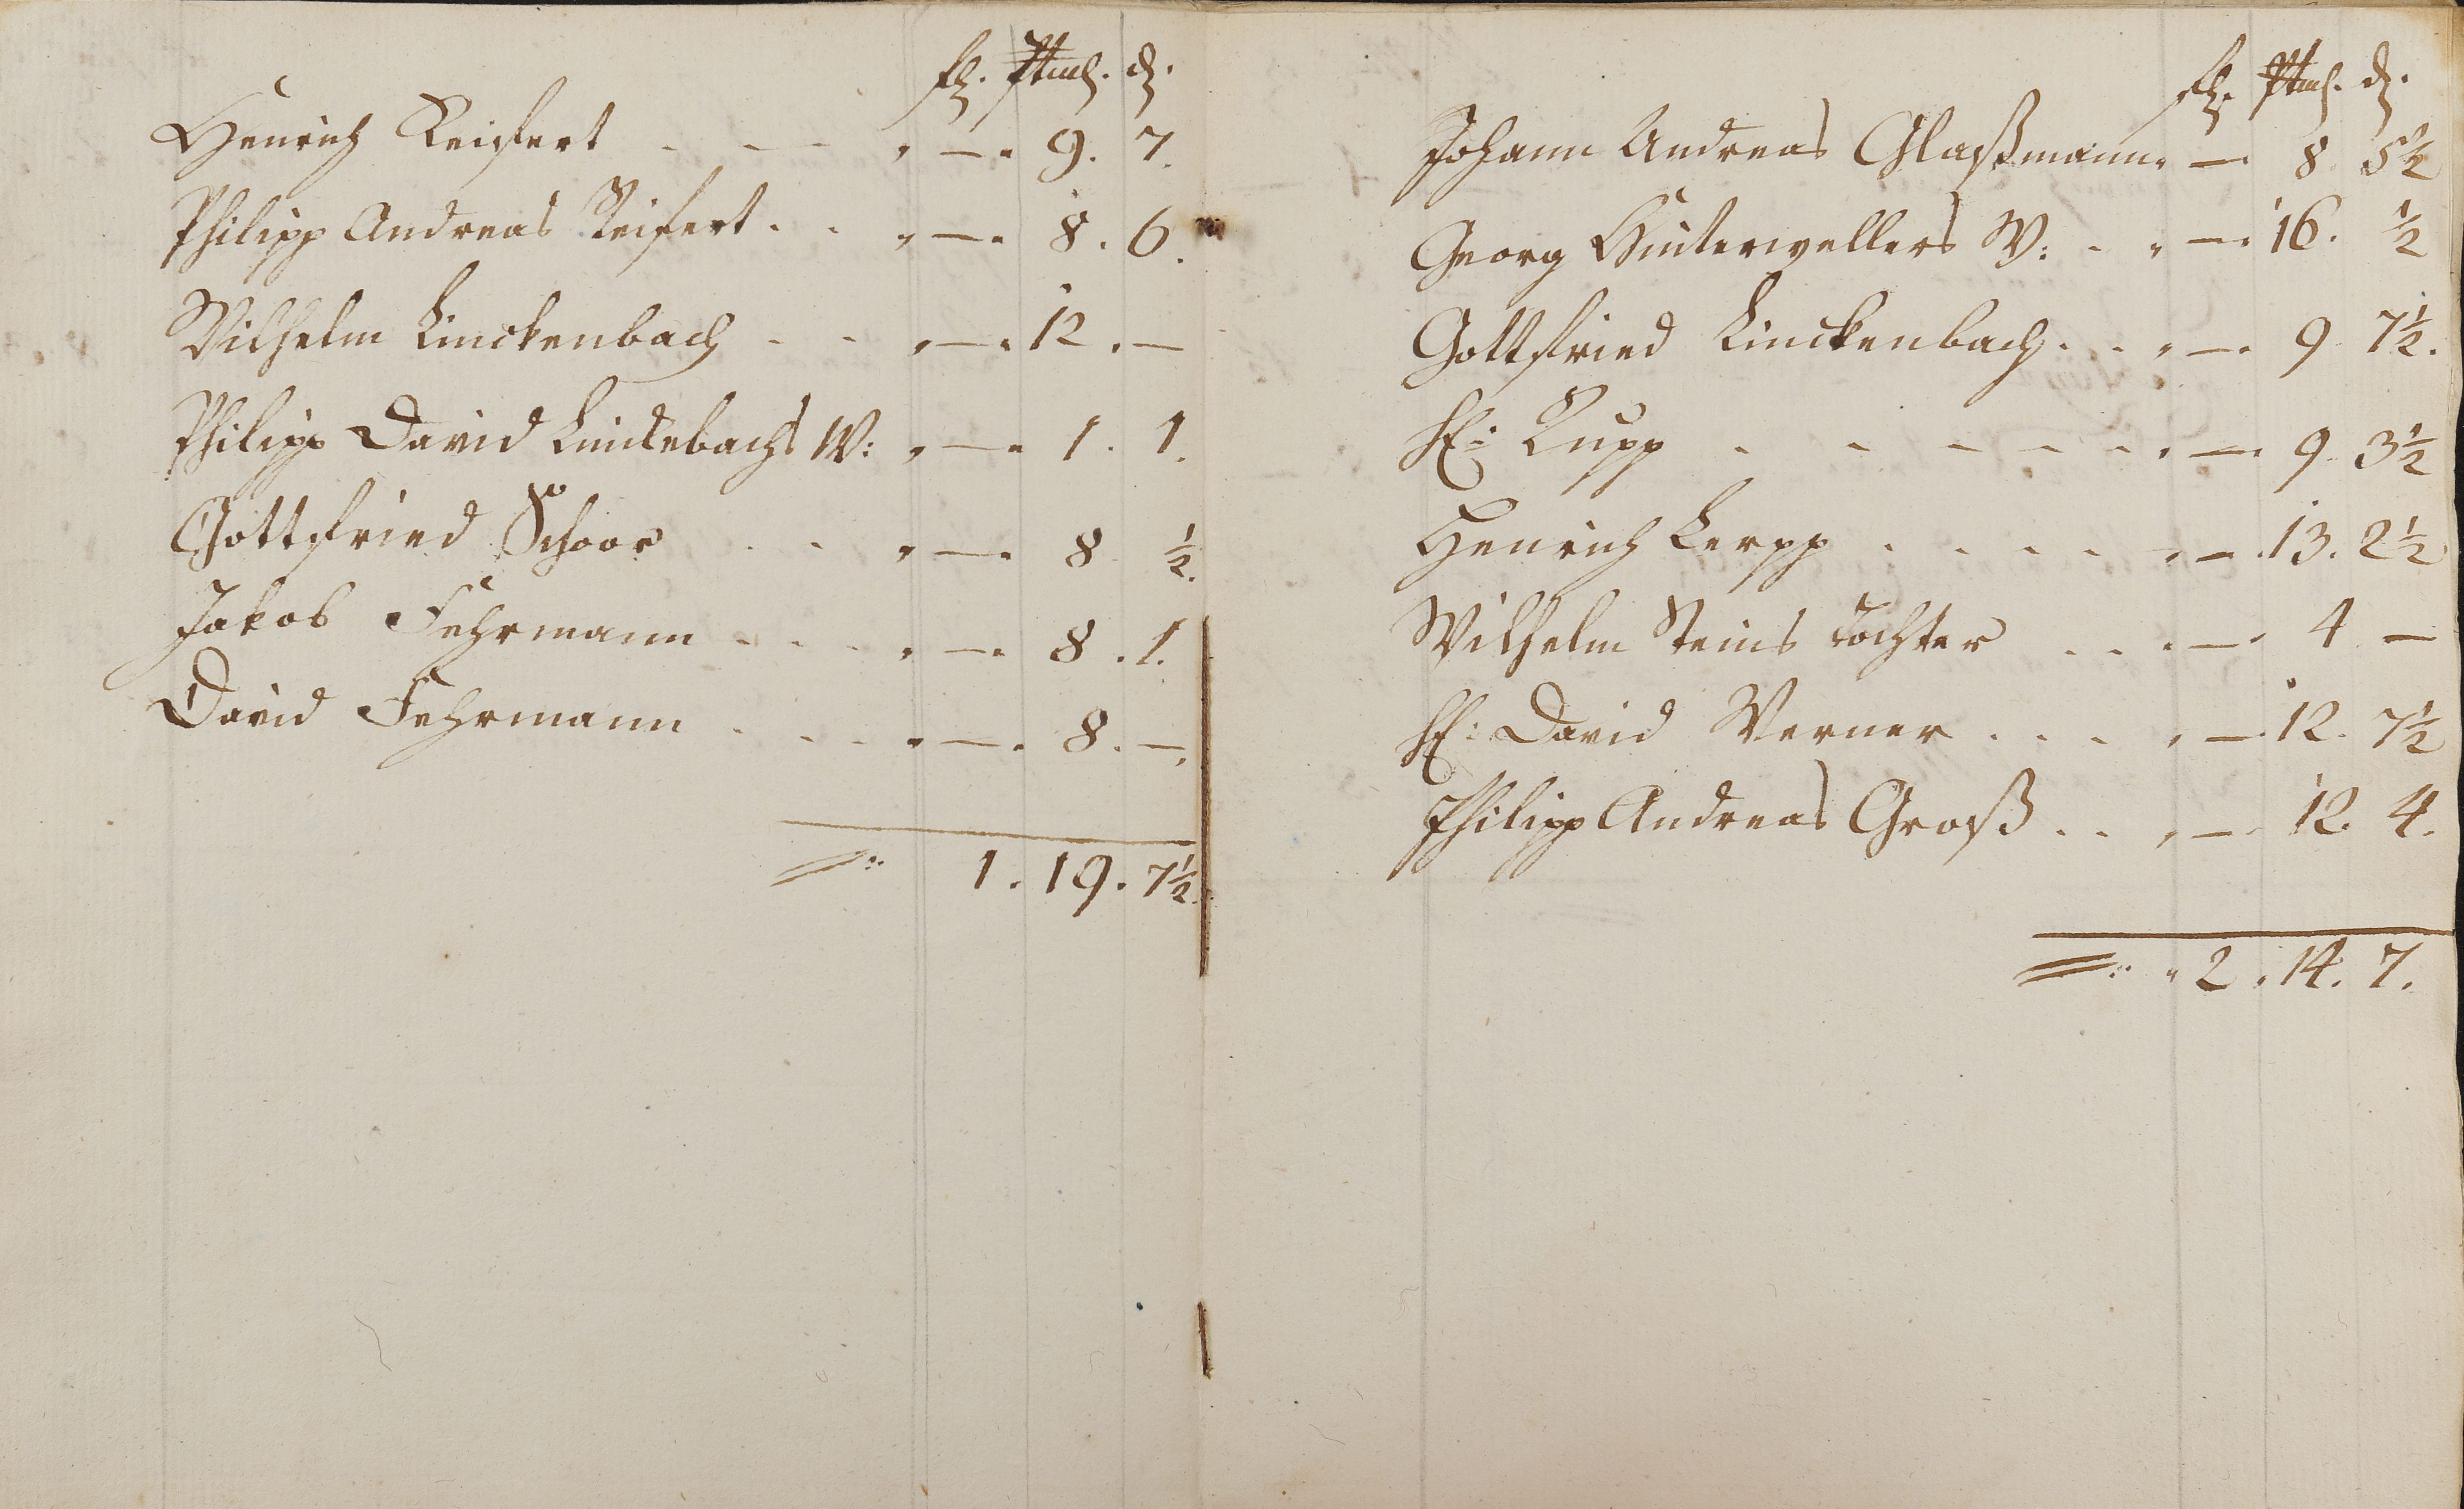 fl. d.
Henrich Reifert - - - „ — „ 9. 7.
Philipp Andreas Reifert . . „ — „ 8. 6.
Wilhelm Linckenbach - - „ — „ 12. —
Philipp David Linckebachs W: „ — „ 1. 1.
Gottfried Schoor . . „ — „ 8 ½.
Jakob Fehrmann - - - „ — „ 8. 1.
David Fehrmann . . . „ — „ 8. —.
1. 19. 7½.
fl. d.
Johann Andreas Glaßmann „ — 8 5½
Georg Hinterwellers W: - „ — „ 16. ½
Gottfried Linckenbach . . „ — „ 9 7½.
H: Rupp - - - - - „ — „ 9 3½
Henrich Lerpp . . . . „ — „ 13. 2½
Wilhelm Steins Tochter . . „ — „ 4 —
H: David Werner . . . „ — „ 12. 7½
Philipp Andreas Groß . . „ — „ 12. 4.
„ 2. 14. 7.